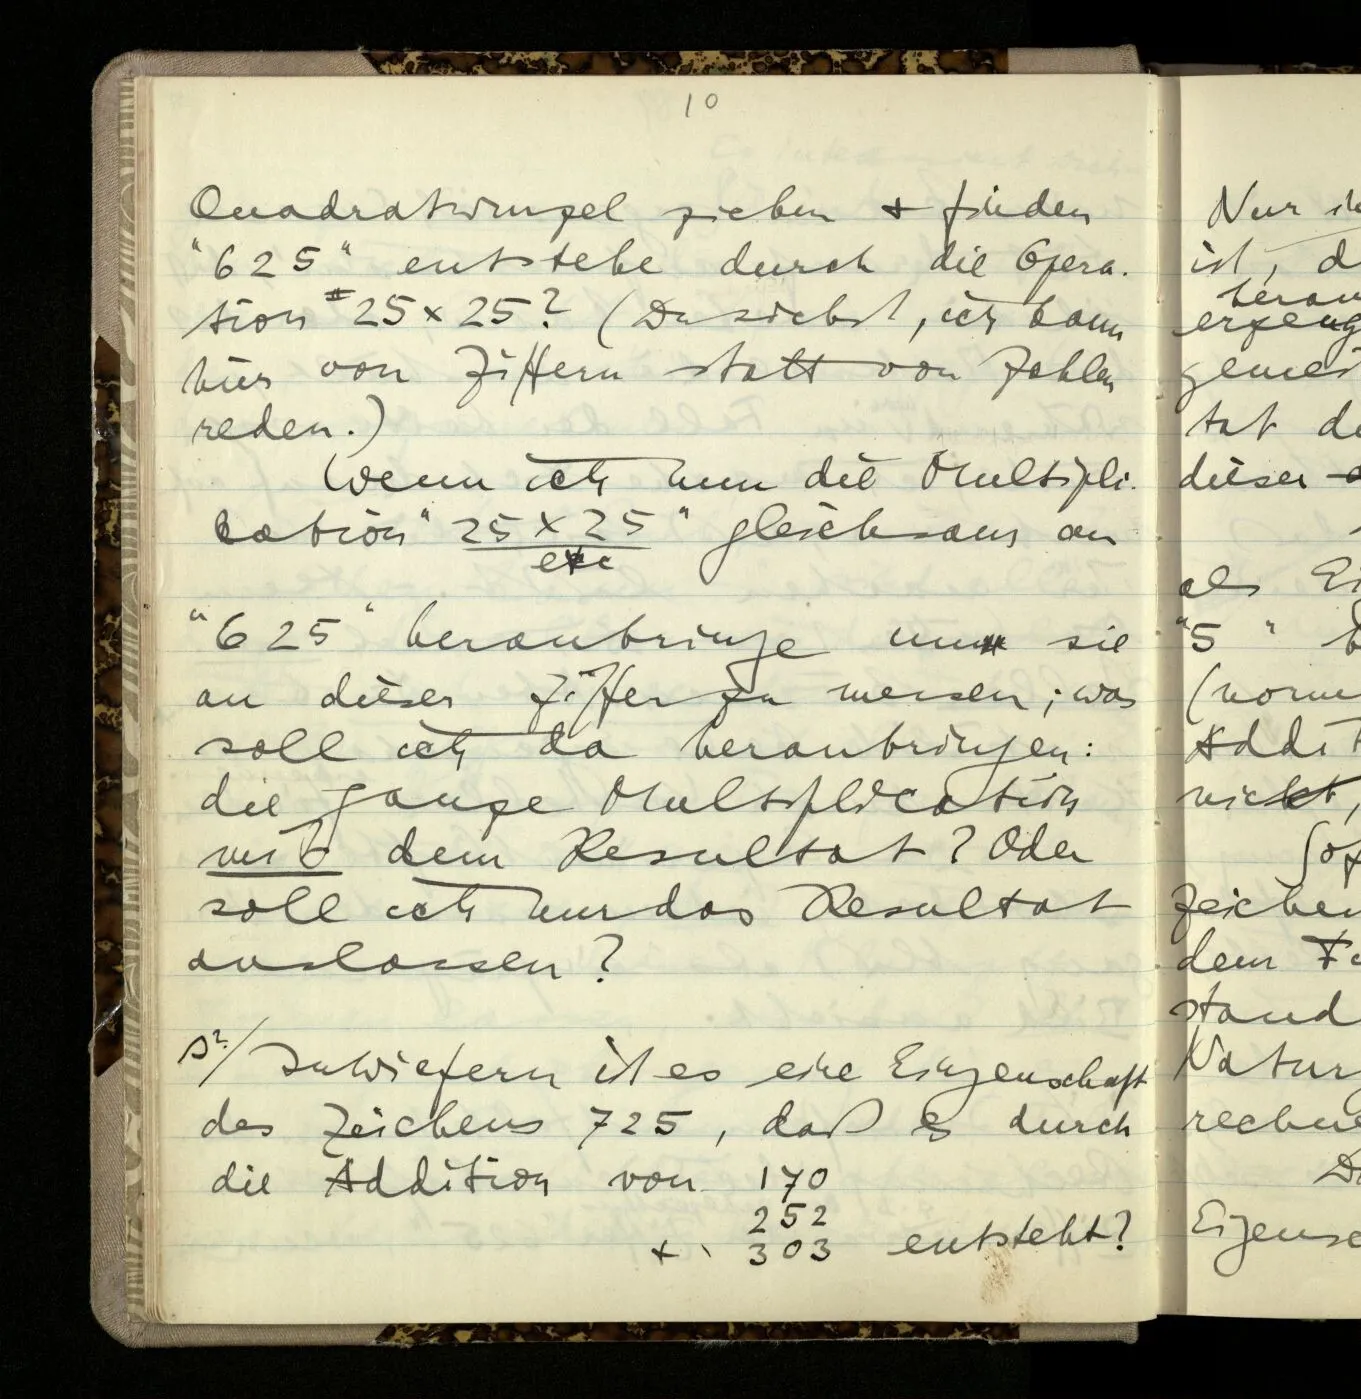 10
Quadratwurzel ziehen + finden
"625" entstehe durch die Opera-
tion 25 × 25? (Du siehst, ich kann
hier von Ziffern statt von Zahlen
reden.)
Wenn ich nun die Multipli-
cation "25 × 25" gleichsam an
etc
"625" heranbringe um sie
an dieser Ziffer zu messen; was
soll ich da heranbringen:
die ganze Multiplication
mit dem Resultat? Oder
soll ich nur das Resultat
auslassen?
S?/ Inwiefern ist es eine Eingenschaft
des Zeichens 725, daß es durch
die Addition von 170
252
+ 303 entsteht?
Nur
ist, d
heran
erzeug
gemei
tat de
dieser
als Ei
"5"
(norm
Addit
nicht,
Sof
Zeichen
dem
stand
Natur
rechne
Eigens